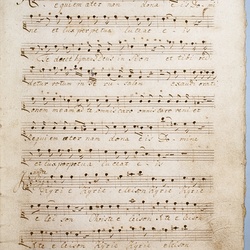 Requiem æter non dona eis Do
ne et lux perpetua luceat eis
Te decet hymnus Deus in Sion et tibi red
detur votum in Je ru salem exaudi orati
onem meam ad te omnis caro omnis caro veniet
Requiem æter nam dona eis Domine
et lux perpetua luceat eis
Kyrie Kyrie eleison Kyrie Kyrie
e lei son Christe eleison Christe eleison
Kyrie eleison Kyrie eleison